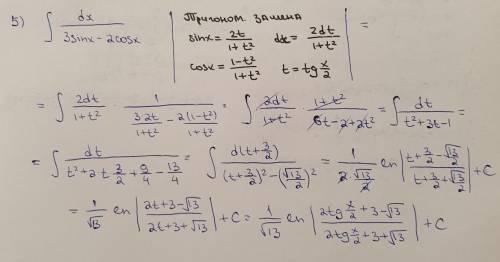 5) ∫ dx/(3sinx-2cosx) | Тригоном. замена
sinx = 2t/(1+t²) dx = 2dt/(1+t²)
cosx = (1-t²)/(1+t²) t = tg x/2 | =
= ∫ 2dt/(1+t²) · 1/(3·2t/(1+t²) - 2(1-t²)/(1+t²)) = ∫ 2dt/(1+t²) · (1+t²)/(6t-2+2t²) = ∫ dt/(t²+3t-1) =
= ∫ dt/(t²+2·t·3/2+9/4-13/4) = ∫ d(t+3/2)/((t+3/2)²-(√13/2)²) = 1/(2·√13/2) ln |(t+3/2-√13/2)/(t+3/2+√13/2)| + C
= 1/√13 ln |(2t+3-√13)/(2t+3+√13)| + C = 1/√13 ln |(2tg x/2+3-√13)/(2tg x/2+3+√13)| + C